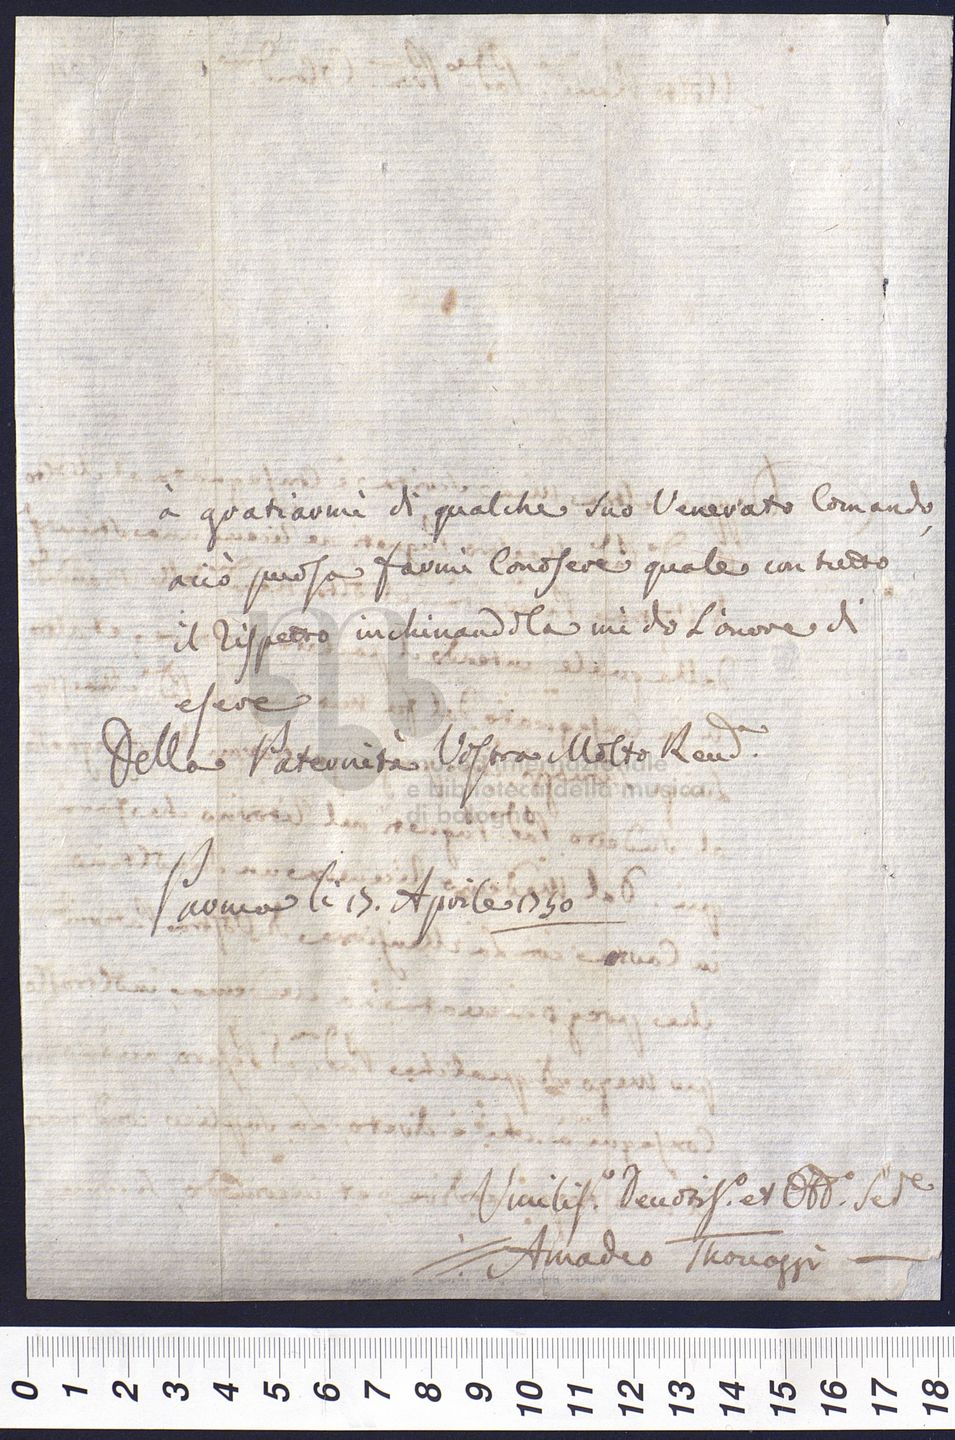 à gratiarmi di qualche suo Venerato Comando,
acciò possa farmi Conosere quale con tutto
il Rispetto inchinandola mi do L'onore di
esere
Della Paternità Vostra Molto Reud.ª
museo internazionale
e biblioteca della musica
di bologna
Parma li 17. Aprile 1750
Umiliss.º Deuotiss.º et Obb.º Ser.e
Amadeo
0 1 2 3 4 5 6 7 8 9 10 11 12 13 14 15 16 17 18